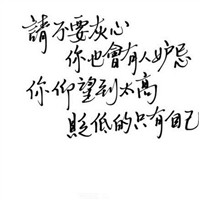 請不要灰心
你也會有人妒忌
你仰望到太高
貶低的只有自己